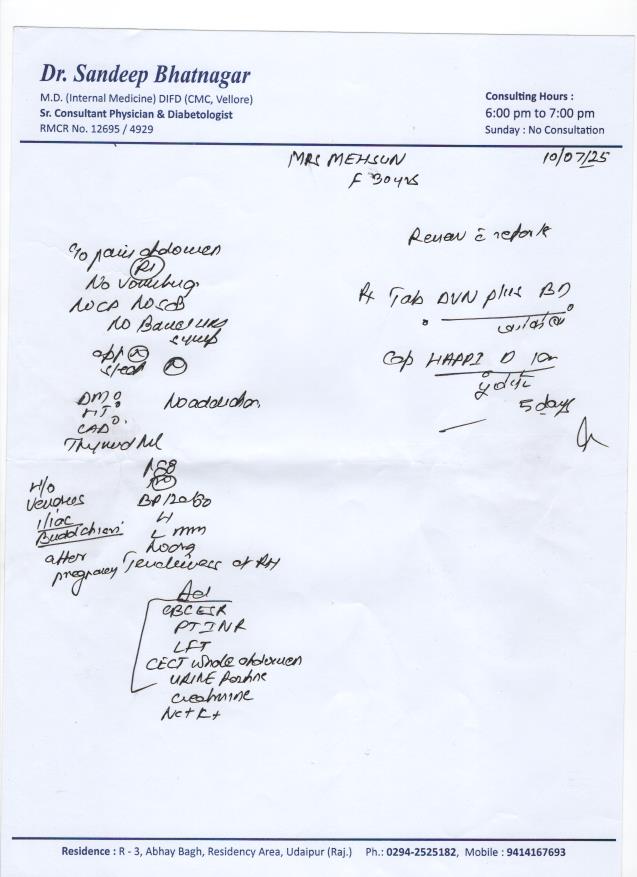 Dr. Sandeep Bhatnagar
M.D. (Internal Medicine) DIFD (CMC, Vellore)
Sr. Consultant Physician & Diabetologist
RMCR No. 12695 / 4929
Consulting Hours :
6:00 pm to 7:00 pm
Sunday : No Consultation
MRS MEHSUN
10/07/25
F 30 yrs
c/o pain abdomen
No vomiting
No CP No SOB
No Bauel urs
symp
No addiction
DM 0
HT 0
CAD 0
Thyroid Nil
BP 120/80
H/o
Venous
iliac
Buddchieri
after
pregnancy
Tenderness at RH
Ad
CBC ESR
PT INR
LFT
CECT whole abdomen
URINE Routine
Creatinine
Na+ K+
Review c reports
Rx Tab DVN plus BD
Cap HAPPI D
5 days
Residence : R - 3, Abhay Bagh, Residency Area, Udaipur (Raj.) Ph.: 0294-2525182, Mobile : 9414167693